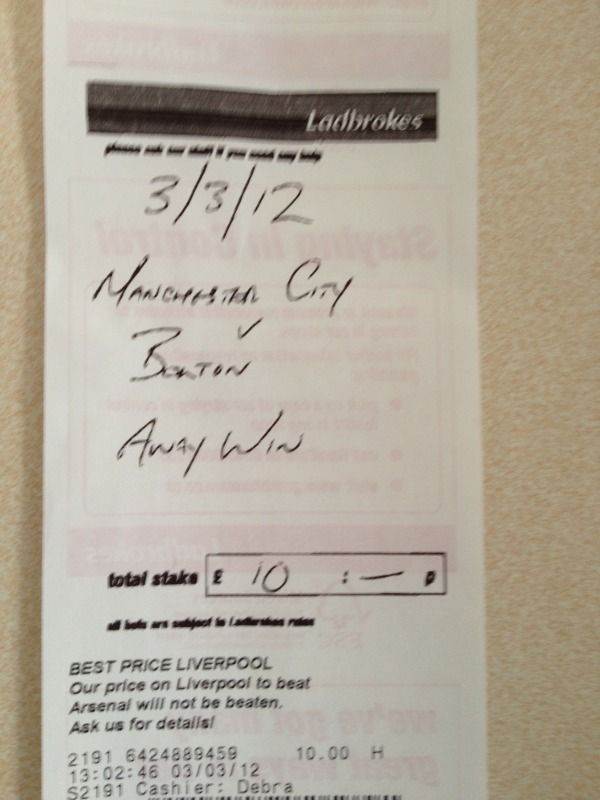 Ladbrokes
please ask our staff if you need any help
3/3/12
MANCHESTER CITY
V
BOLTON
AWAY WIN
total stake £ 10 : — p
all bets are subject to Ladbrokes rules
BEST PRICE LIVERPOOL
Our price on Liverpool to beat
Arsenal will not be beaten.
Ask us for details!
2191 6424889459 10.00 H
13:02:46 03/03/12
S2191 Cashier: Debra